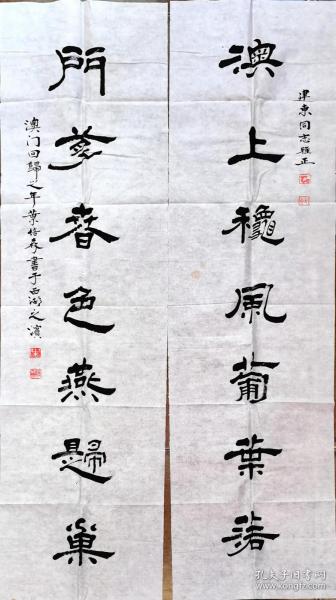 澳上穐風葡葉落
梁東同志雅正
門春色燕歸巢
澳门回歸之年葉培森書于西湖之濱
孔夫子旧书网